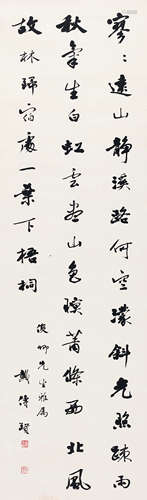 寥〻遠山静溪路何空濛斜光照疎雨
秋氣生白虹雲盡山色暝蕭條西北風
故林歸宿處一葉下梧桐
俊卿先生雅属
戴傳賢